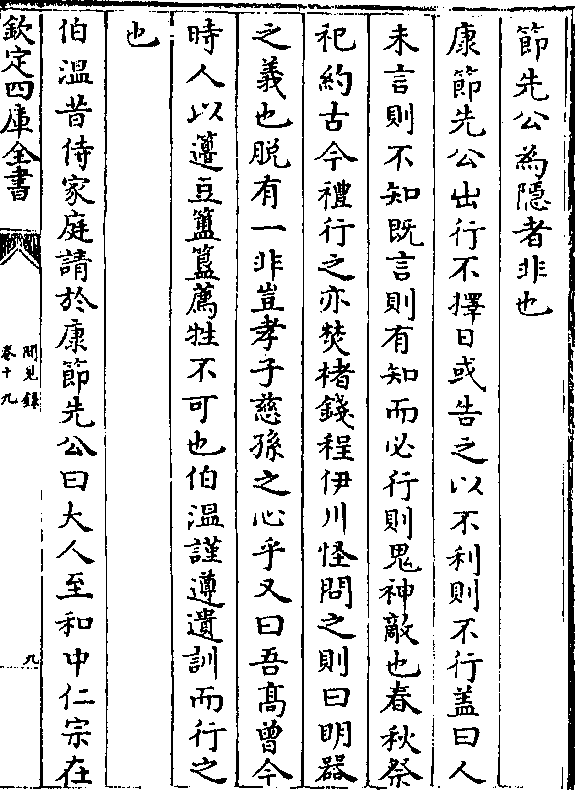 節先公為隱者非也
康節先公出行不擇日或告之以不利則不行盖曰人
未言則不知既言則有知而必行則鬼神敵也春秋祭
祀約古今禮行之亦焚楮錢程伊川怪問之則曰明器
之義也脱有一非豈孝子慈孫之心乎又曰吾髙曾今
時人以籩豆簠簋薦牲不可也伯溫謹遵遺訓而行之
也
伯溫昔侍家庭請於康節先公曰大人至和中仁宗在
欽定四庫全書
聞見錄
卷十九
九